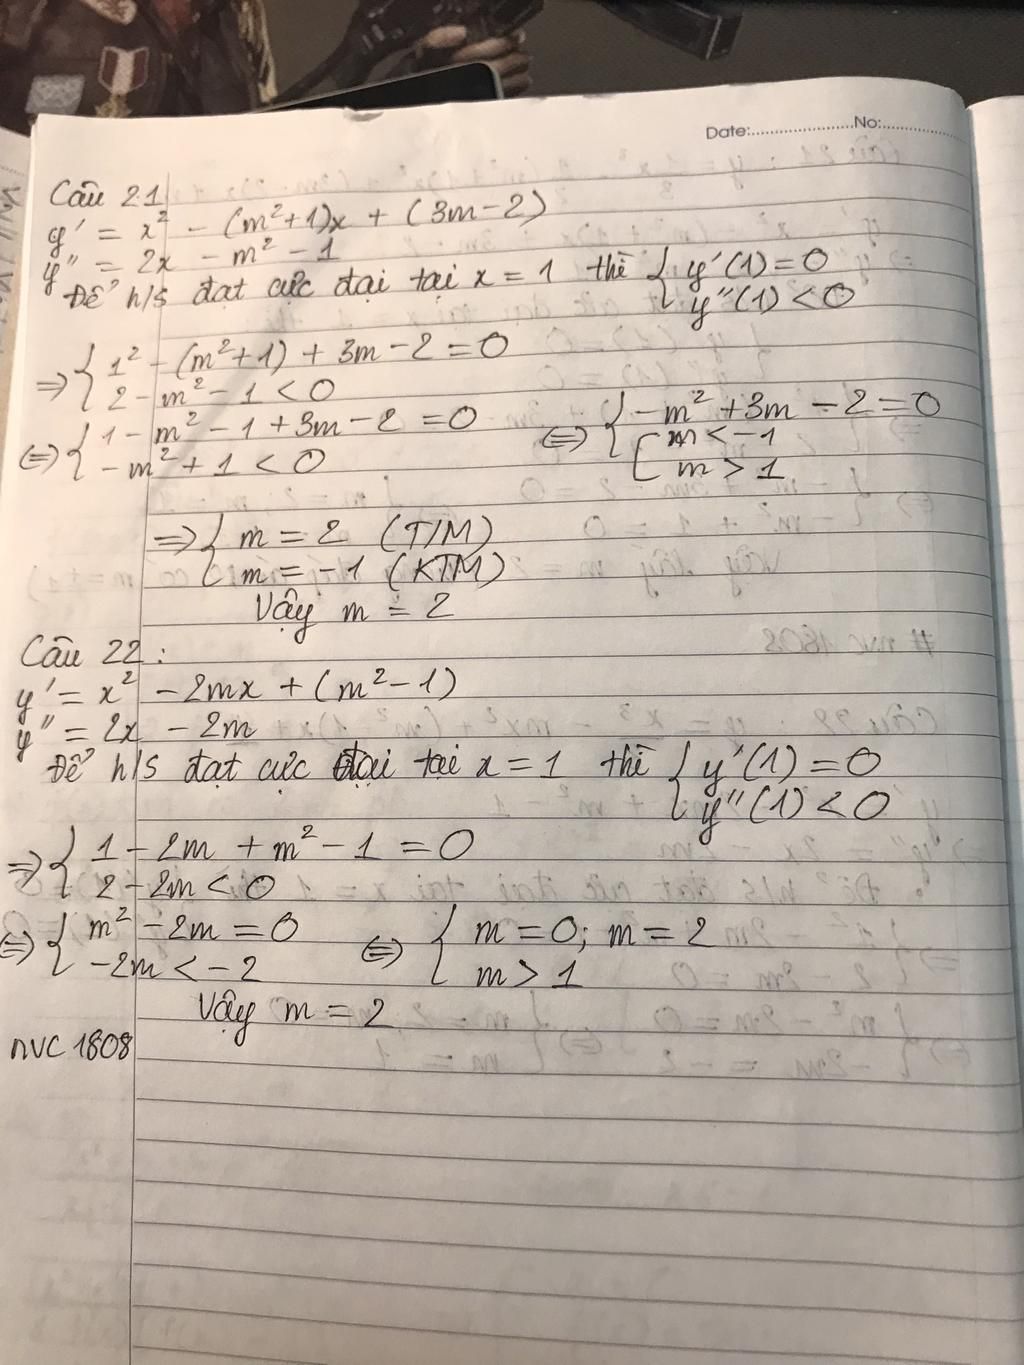 Date:..................No:.............
Câu 21
y' = x² - (m²+1)x + (3m-2)
y'' = 2x - m² - 1
Để h/s đạt cực đại tại x = 1 thì { y'(1) = 0
y''(1) < 0
=> { 1² - (m²+1) + 3m - 2 = 0
2 - m² - 1 < 0
<=> { 1 - m² - 1 + 3m - 2 = 0
-m² + 1 < 0
<=> { -m² + 3m - 2 = 0
[ m < -1
m > 1
=> { m = 2 (T/M)
m = -1 (KTM)
Vậy m = 2
Câu 22:
y' = x² - 2mx + (m²-1)
y'' = 2x - 2m
Để h/s đạt cực đại tại x = 1 thì { y'(1) = 0
y''(1) < 0
=> { 1 - 2m + m² - 1 = 0
2 - 2m < 0
<=> { m² - 2m = 0
-2m < -2
<=> { m = 0; m = 2
m > 1
Vậy m = 2
nvc 1808